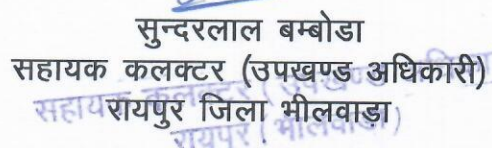 सुन्दरलाल बम्बोडा
सहायक कलक्टर (उपखण्ड अधिकारी)
रायपुर जिला भीलवाड़ा
सहायक कलक्टर (उपखण्ड
रायपुर (भीलवाड़ा)